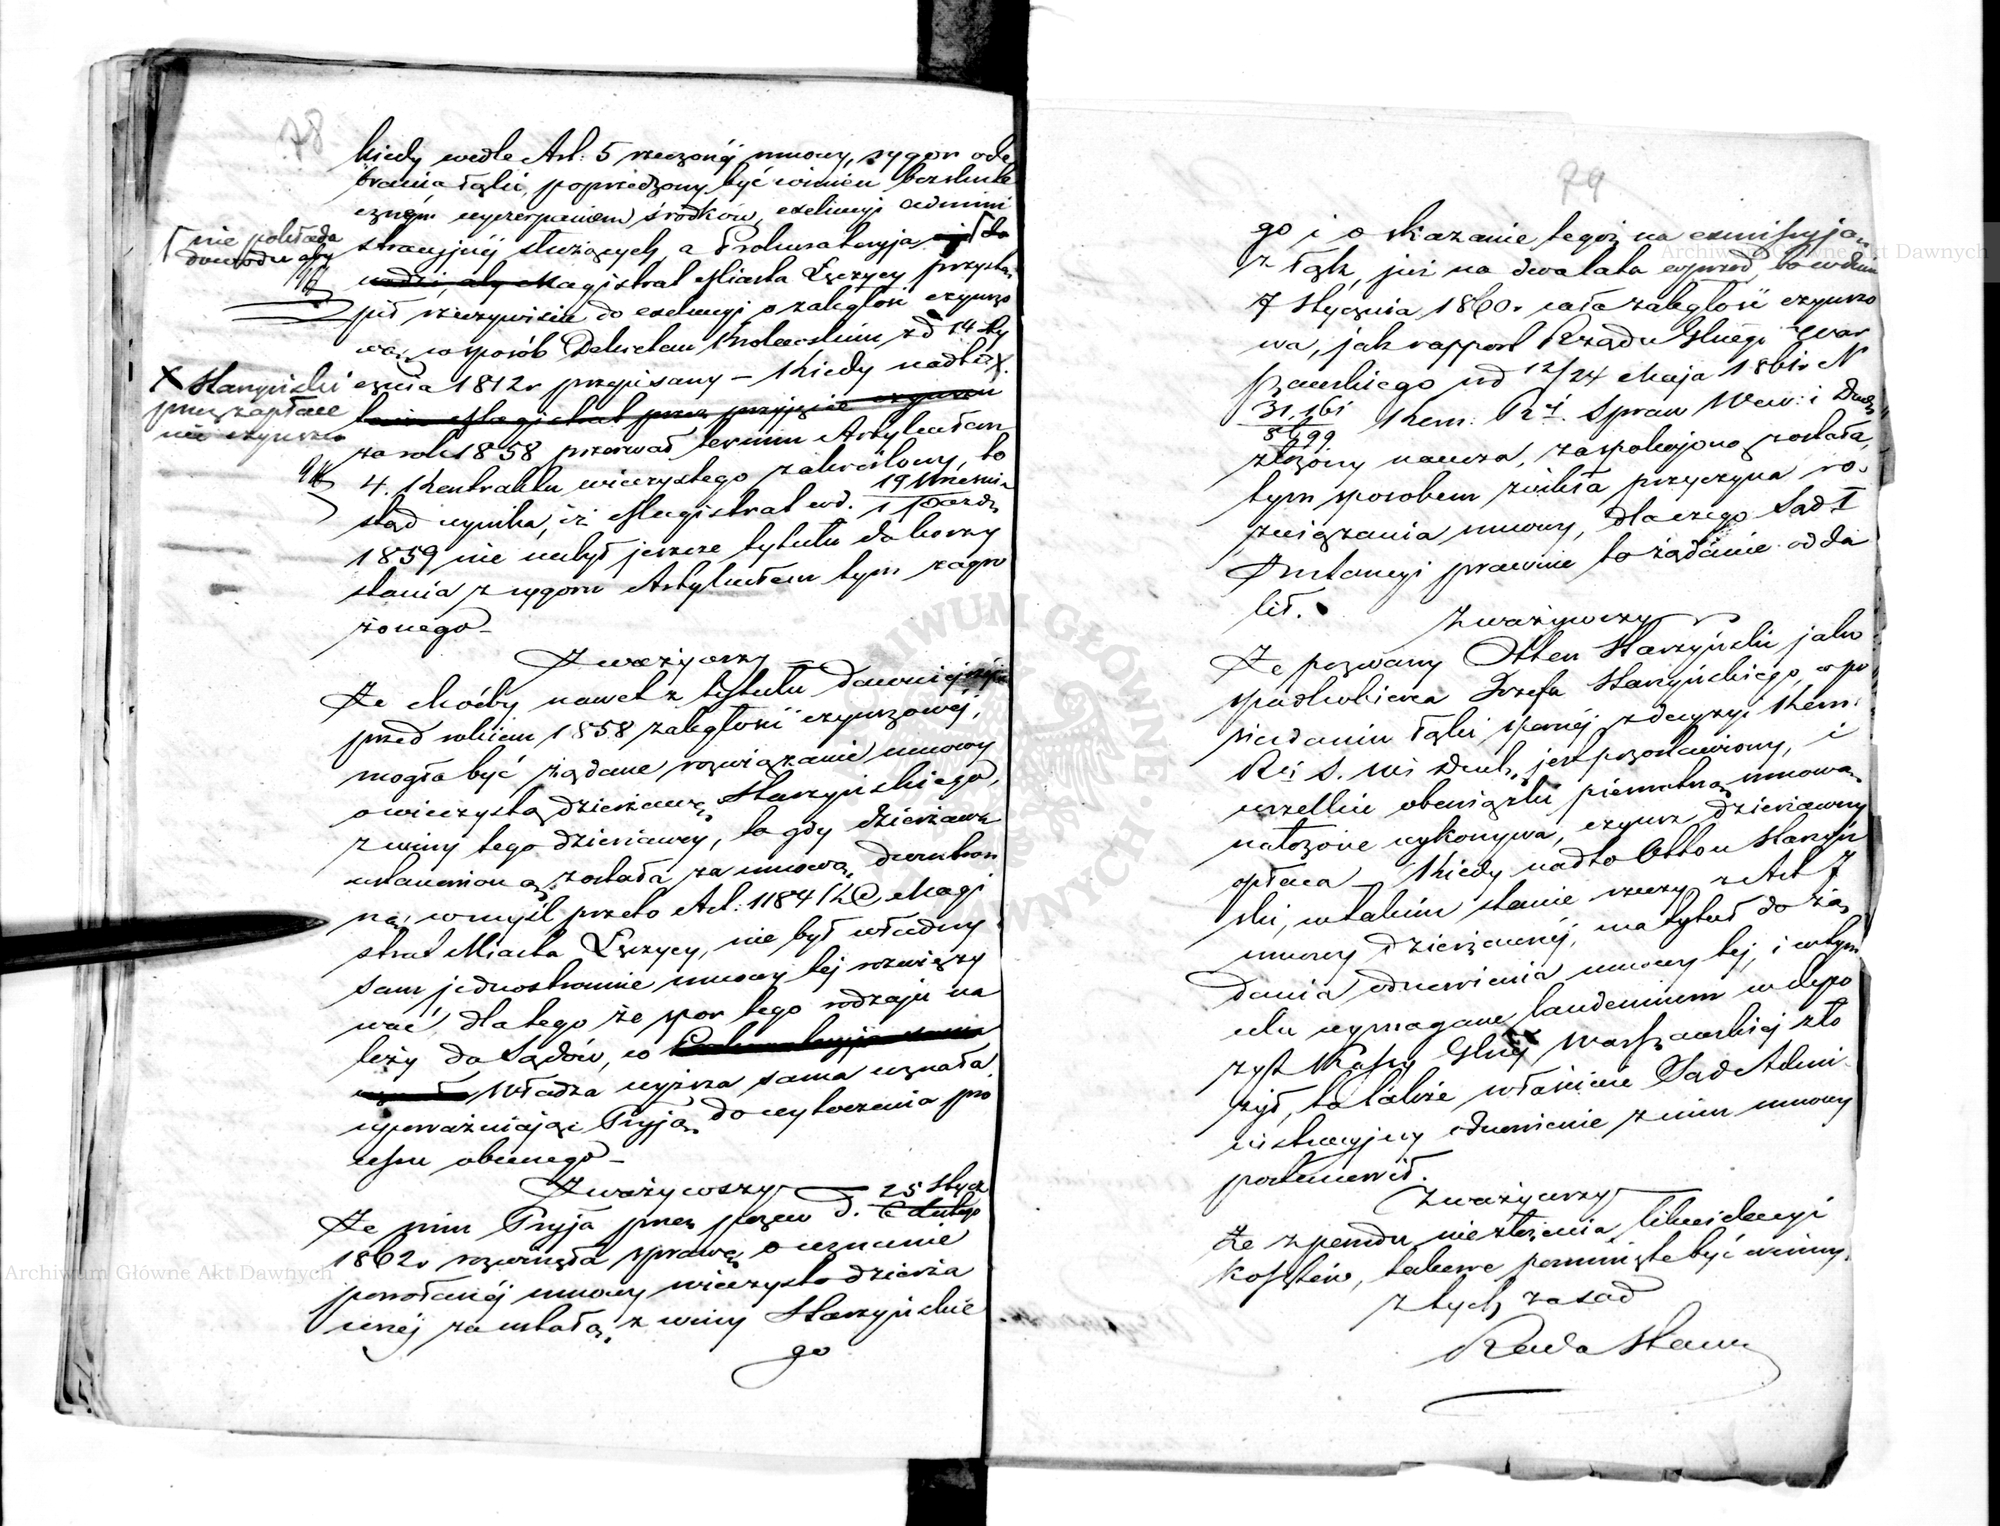 78
kiedy wedle Art: 5 rzeczonéj umowy, rygor ode
brania łąki, poprzedzony być winien bezskute
cznym wyczerpaniem środków, exekucyi admini
stracyjnéj służących, a Prokuratoryja
nie pokłada
dowodu aby
Magistrat Miasta Łęczycy przystą
pił rzeczywiście do exekucyi o zaległość czynszo
wą, w sposób Dekretem Królewskim z d 14 Sty
cznia 1812 r przepisany – Kiedy nadto X
X Starzyński
przez zapłace
nie czynszu
Magistrat przez przyjęcie czynszu
za rok 1858 przerwał termin Artykułem
4. Kontraktu wieczystego zakreślony, to
stąd wynika, iż Magistrat w d. 19 Września
1 Paźdz
1859 nie nabył jeszcze tytułu do korzy
stania z rygoru Artykułem tym zagro
żonego –
Zważywszy –
Że choćby nawet z tytułu dawniejszéj
przed rokiem 1858 zaległości czynszowéj,
mogła być żądane rozwiązanie umowy
o wieczystą dzierżawę Starzyńskiego,
z winy tego dzierżawcy, to gdy dzierżawa
ustanowioną została za umową dwustron
ną, w myśl przeto Art: 1184 KC Magi
strat Miasta Łęczycy, nie był władny
sam jednostronnie umowy téj rozwiązy
wać, dla tego że spor tego rodzaju na
leży do Sądów, co
Władza wyższa sama uznała
upoważniając Pryją do wytoczenia pro
cesu obecnego –
Zważywszy – 25 Stycz
Że nim Pryja przez pozew d. 6 Lutego
1862 r rozwinęła sprawę o uznanie
powołanéj umowy wieczysto dzierża
wnéj za ustałą, z winy Starzyńskie
go
79
go i o skazanie tegoż na exmissyją
z łąk, już na dwa lata wprzód, bo w dniu
7 Stycznia 1860 r cała zaległość czynszo
wa, jak rapport Rządu Głnego War
szawskiego z d 12/24 Maja 1861 r N
31,161 Kom: Rz. Spraw Wew: i Duch
złożony naucza, zaspokojoną została,
tym sposobem znikła przyczyna ro
związania umowy, dlaczego Sąd I
Instancyi prawnie to żądanie odda
lił.
Zważywszy
Że pozwany Otton Starzyński jako
spadkobierca Józefa Starzyńskiego, w po
siadaniu łąki spornéj z decyzyi Kom:
Rz. S. W. i Duch. jest pozostawiony, i
wszelkie obowiązki pierwotną umową
nałożone wykonywa, czynsz dzierżawny
opłaca – Kiedy nadto Otton Starzyń
ski, w takim stanie rzeczy z Art 7
umowy dzierżawnéj, ma tytuł do żą
dania odnowienia umowy téj, i w tym
celu wymagane laudemium w depo
zyt Kassy Głnéj Warszawskiéj zło
żył, to także właściwie Sąd Admi
nistracyjny odnowienie z nim umowy
postanowił.
Zważywszy
Że z powodu niezłożenia likwidacyi
Kosztów, takowe pominięte być winny.
z tych zasad
Rada Stanu